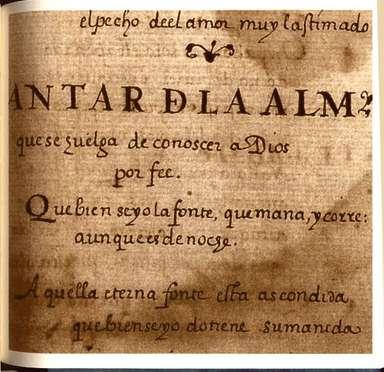 el pecho deel amor muy lastimado
ANTAR DLA ALMA
que se huelga de conoscer a Dios
por fee.
Que bien se yo la fonte, que mana, y corre:
aunque es de noche.
Aquella eterna fonte esta ascondida
que bien se yo do tiene su manida